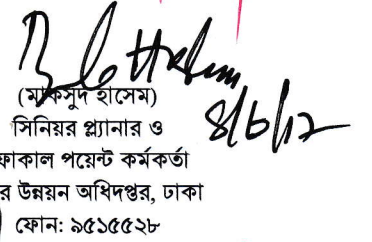 8/6/12
(মাকসুদ হাসেম)
সিনিয়র প্ল্যানার ও
ফোকাল পয়েন্ট কর্মকর্তা
র উন্নয়ন অধিদপ্তর, ঢাকা
ফোন: ৯৫১৫৫২৮